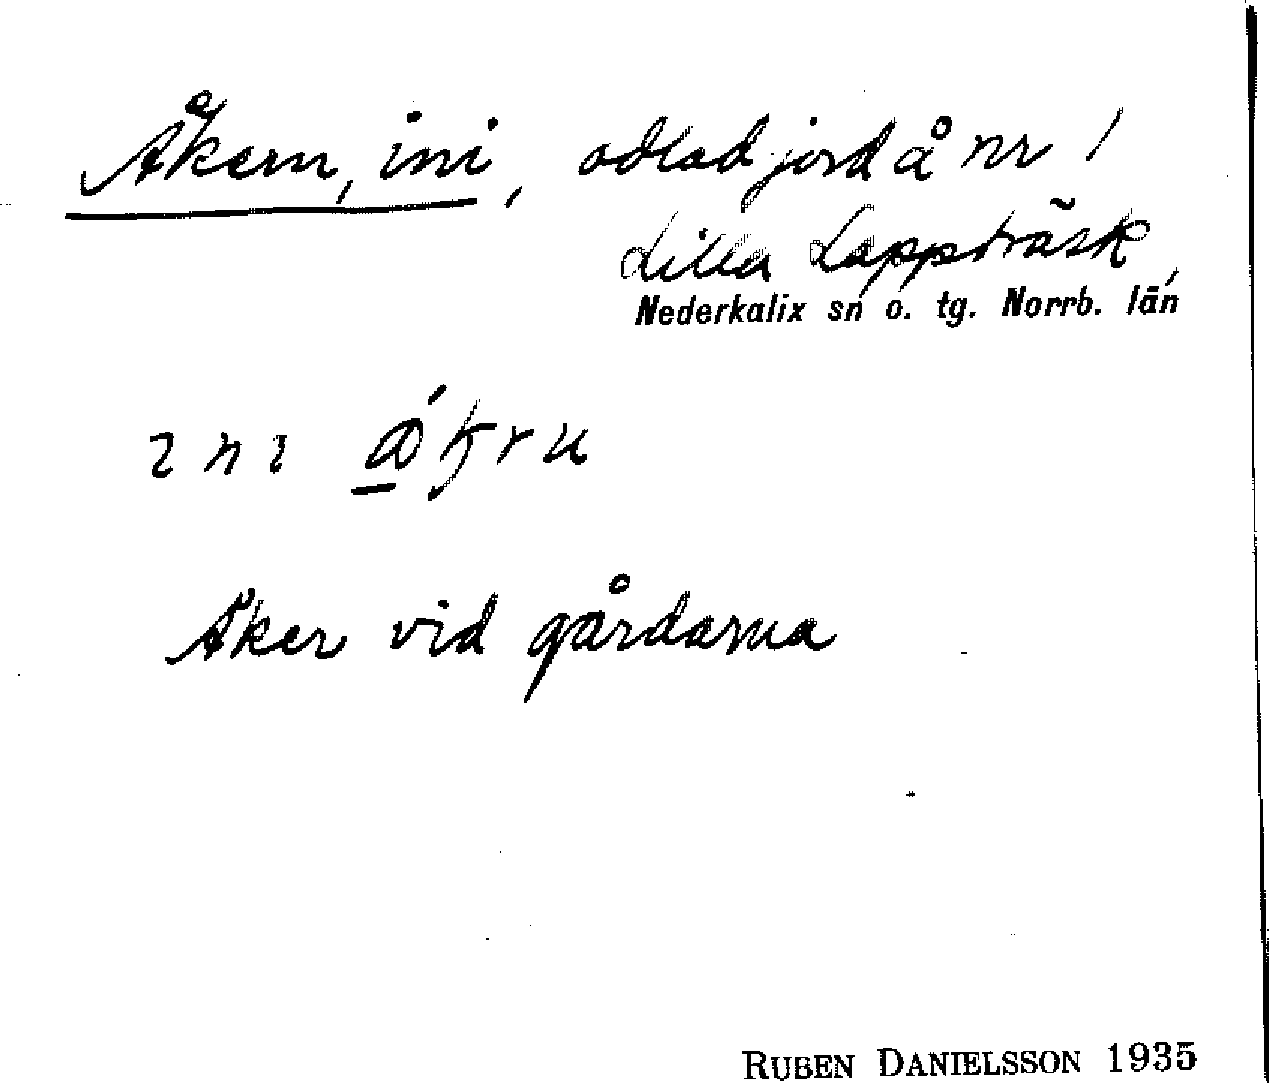 Åkern, ini, odlad jord å nr 1
Lilla Lappträsk,
Nederkalix sn o. tg. Norrb. län
Åker vid gårdarna
RUBEN DANIELSSON 1935